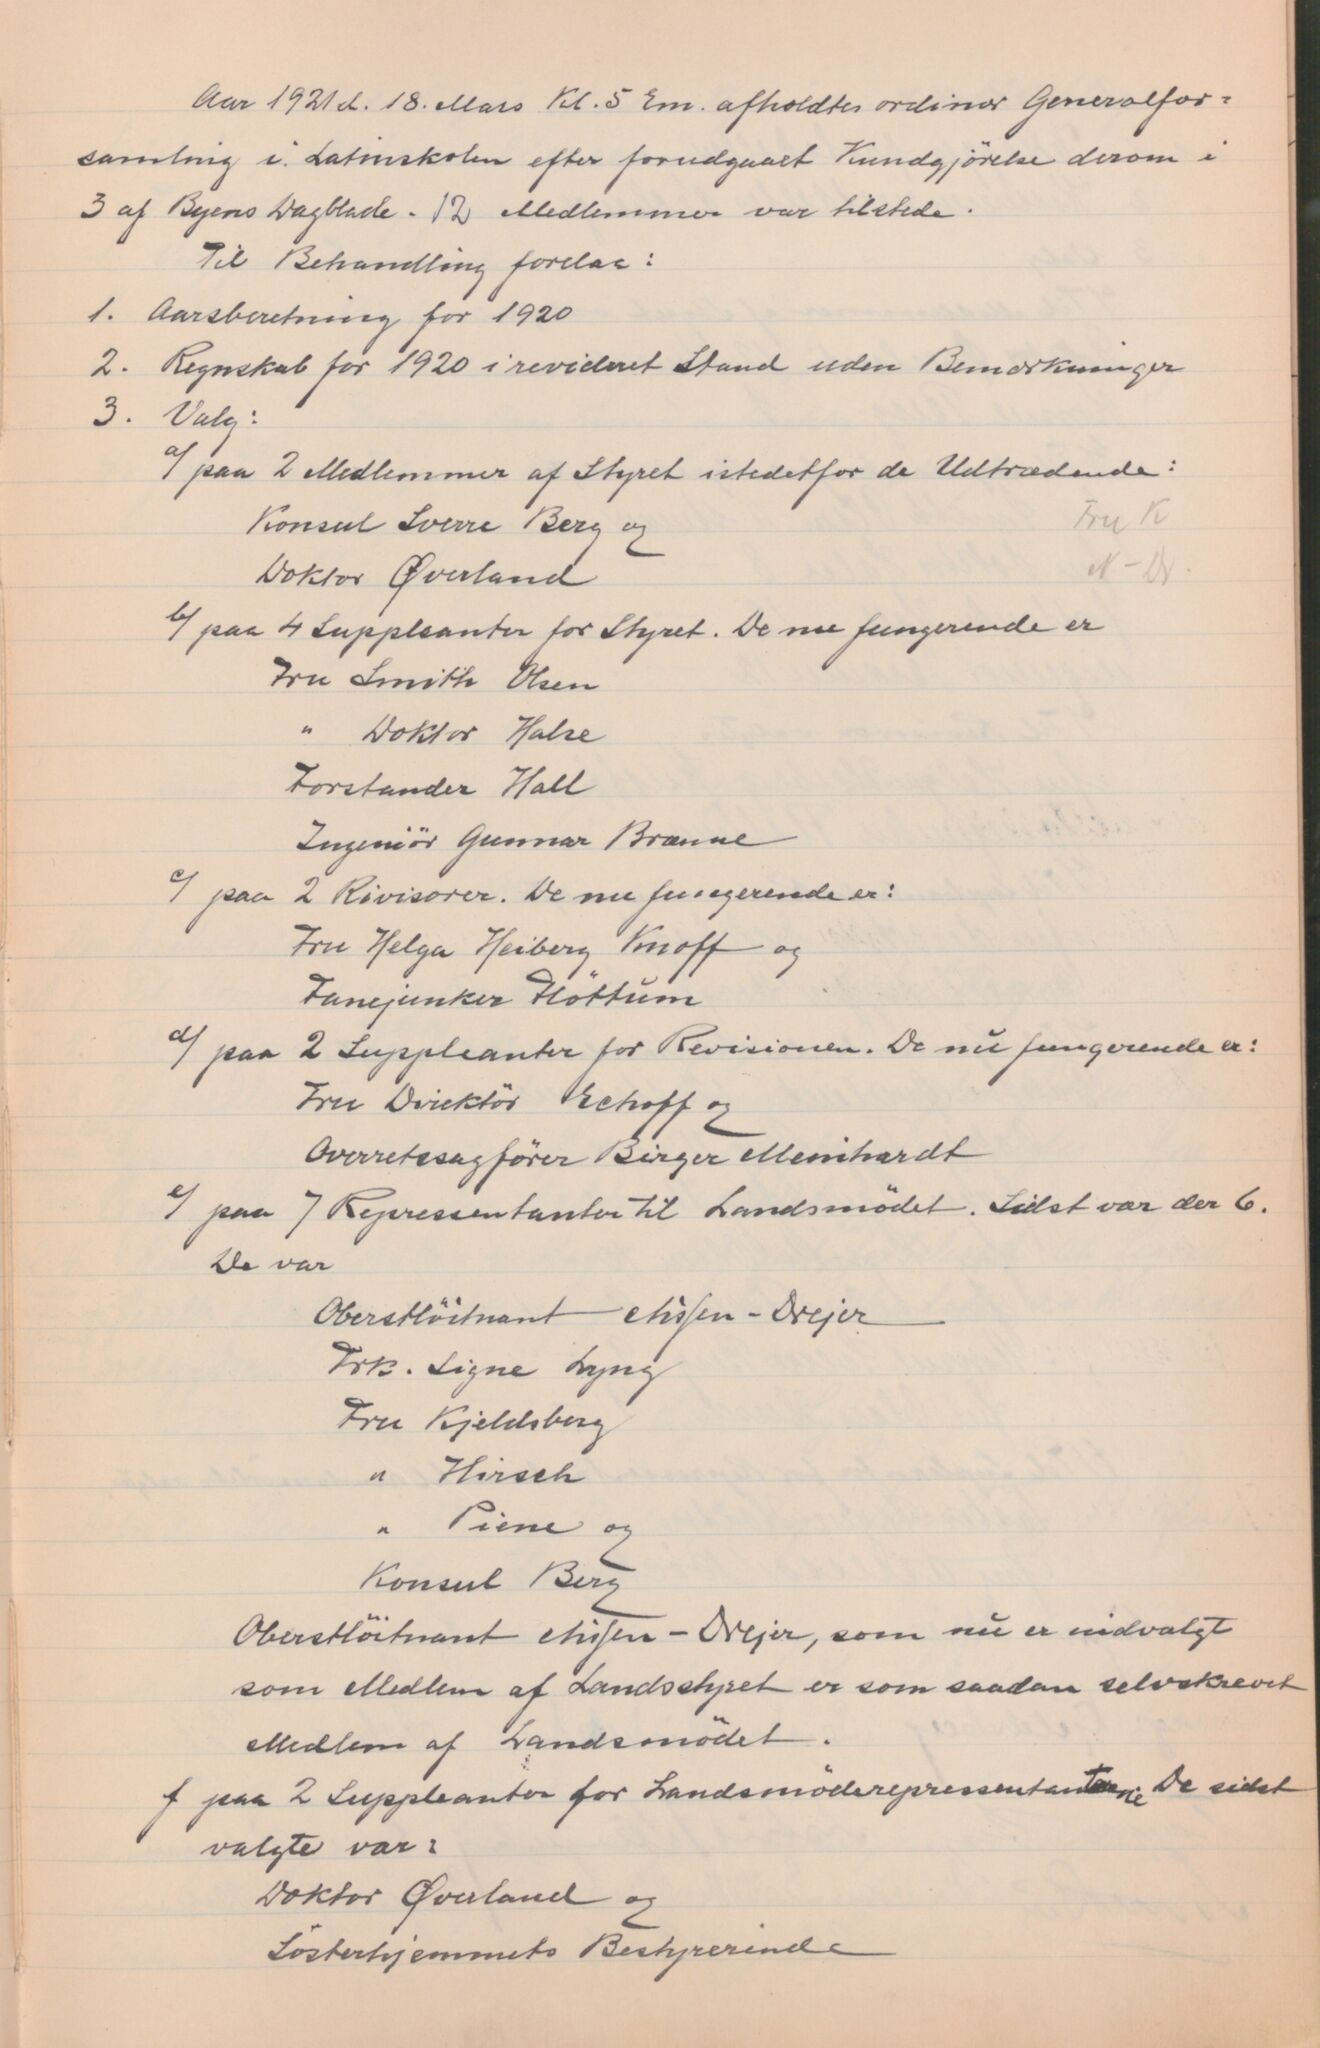 Aar 1921 d. 18. Mars Kl. 5 Em. afholdtes ordinær Generalfor=
samling i Latinskolen efter forudgaaet Kundgjörelse derom i
3 af Byens Dagblade. 12 Medlemmer var tilstede.
Til Behandling forelaa:
1. Aarsberetning for 1920
2. Regnskab for 1920 i revideret Stand uden Bemærkninger
3. Valg:
a/ paa 2 Medlemmer af Styret istedetfor de Udtrædende:
Konsul Sverre Berg og
Fru K
Doktor Øverland
N - Dr.
b/ paa 4 Suppleanter for Styret. De nu fungerende er
Fru Smith Olsen
" Doktor Halse
Forstander Hall
Ingeniör Gunnar Brænne
c/ paa 2 Rivisorer. De nu fungerende er:
Fru Helga Heiberg Knoff og
Fanejunker Flöttum
d/ paa 2 Suppleanter for Revisionen. De nu fungerende er:
Fru Direktör Echoff og
Overretssagförer Birger Meinhardt
e/ paa 7 Repressentanter til Landsmödet. Sidst var der 6.
De var
Oberstlöitnant Nissen - Drejer
Frk. Signe Lyng
Fru Kjeldsberg
" Hirsch
" Piene og
Konsul Berg
Oberstlöitnant Nissen - Drejer, som nu er indvalgt
som Medlem af Landsstyret er som saadan selvskrevet
Medlem af Landsmödet.
f paa 2 Suppleanter for Landsmöderepressentanterne De sidst
valgte var:
Doktor Øverland og
Lösterhjemmets Bestyrerinde